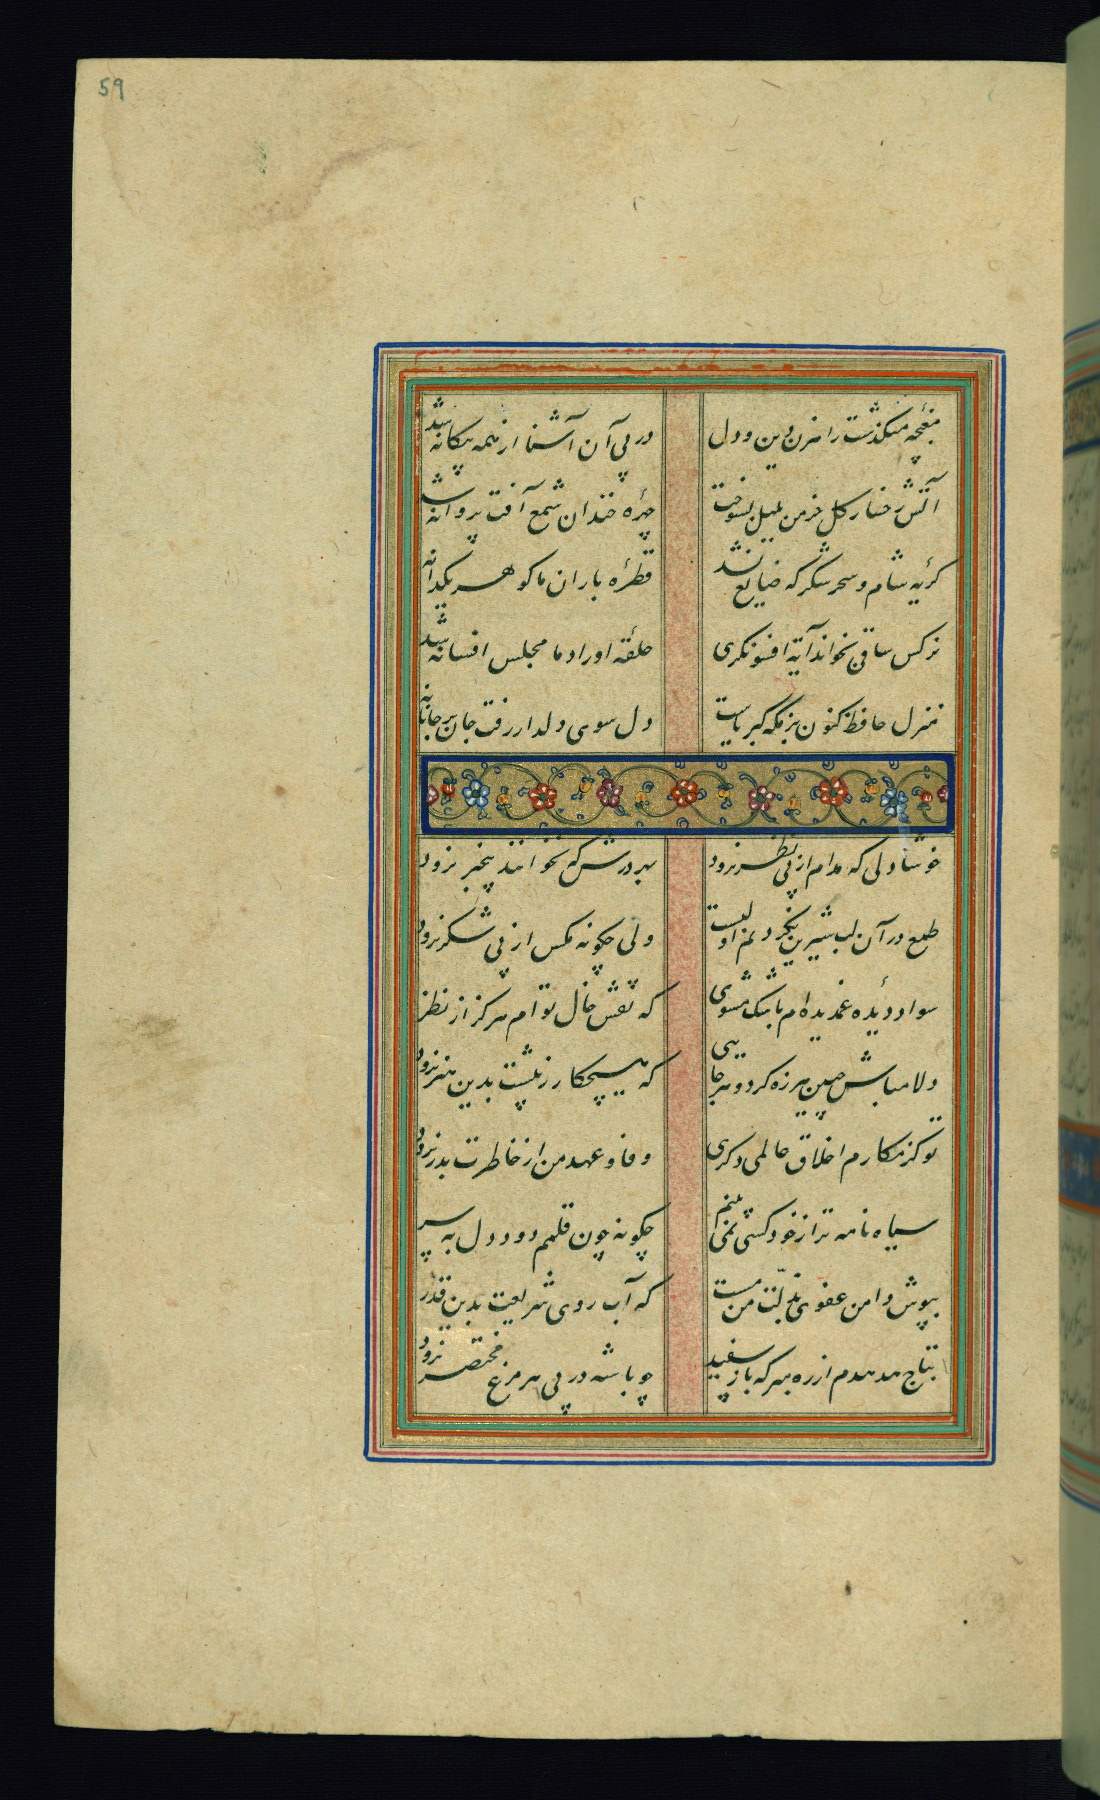 59
مغبچه میگذشت راهزن دین و دل در پی آن آشنا از همه بیگانه شد
آتش رخسار گل خرمن بلبل بسوخت چهرهٔ خندان شمع آفت پروانه شد
گریه شام و سحر شکر که ضایع نشد قطرهٔ باران ما گوهر یکدانه
نرگس ساقی بخواند آیه افسونگری حلقهٔ اوراد ما مجلس افسانه شد
منزل حافظ کنون بزمگه کبریاست دل سوی دلدار رفت جان بر جانانه
خوشا دلی که مدام از پی نظر نرود بهر درش که نخوانند بیخبر نرود
طمع در آن لب شیرین نکردنم اولیست ولی چگونه مگس از پی شکر نرود
سواد دیدهٔ غمدیده‌ام باشک مشوی که نقش خال توام هرگز از نظر
دلا مباش چنین هرزه گرد و هرجایی که هیچکار ز پیشت بدین هنر نرود
تو کز مکارم اخلاق عالمی دگری وفا و عهد من از خاطرت بدر نرود
سیاه نامه‌تر از خود کسی نمی‌بینم چگونه چون قلمم دود دل به سر
بپوش دامن عفوی بذلت من مست که آب روی شریعت بدین قدر
بتاج هدهدم از ره مبر که باز سفید چو باشه در پی هر مرغ مختصر نرود